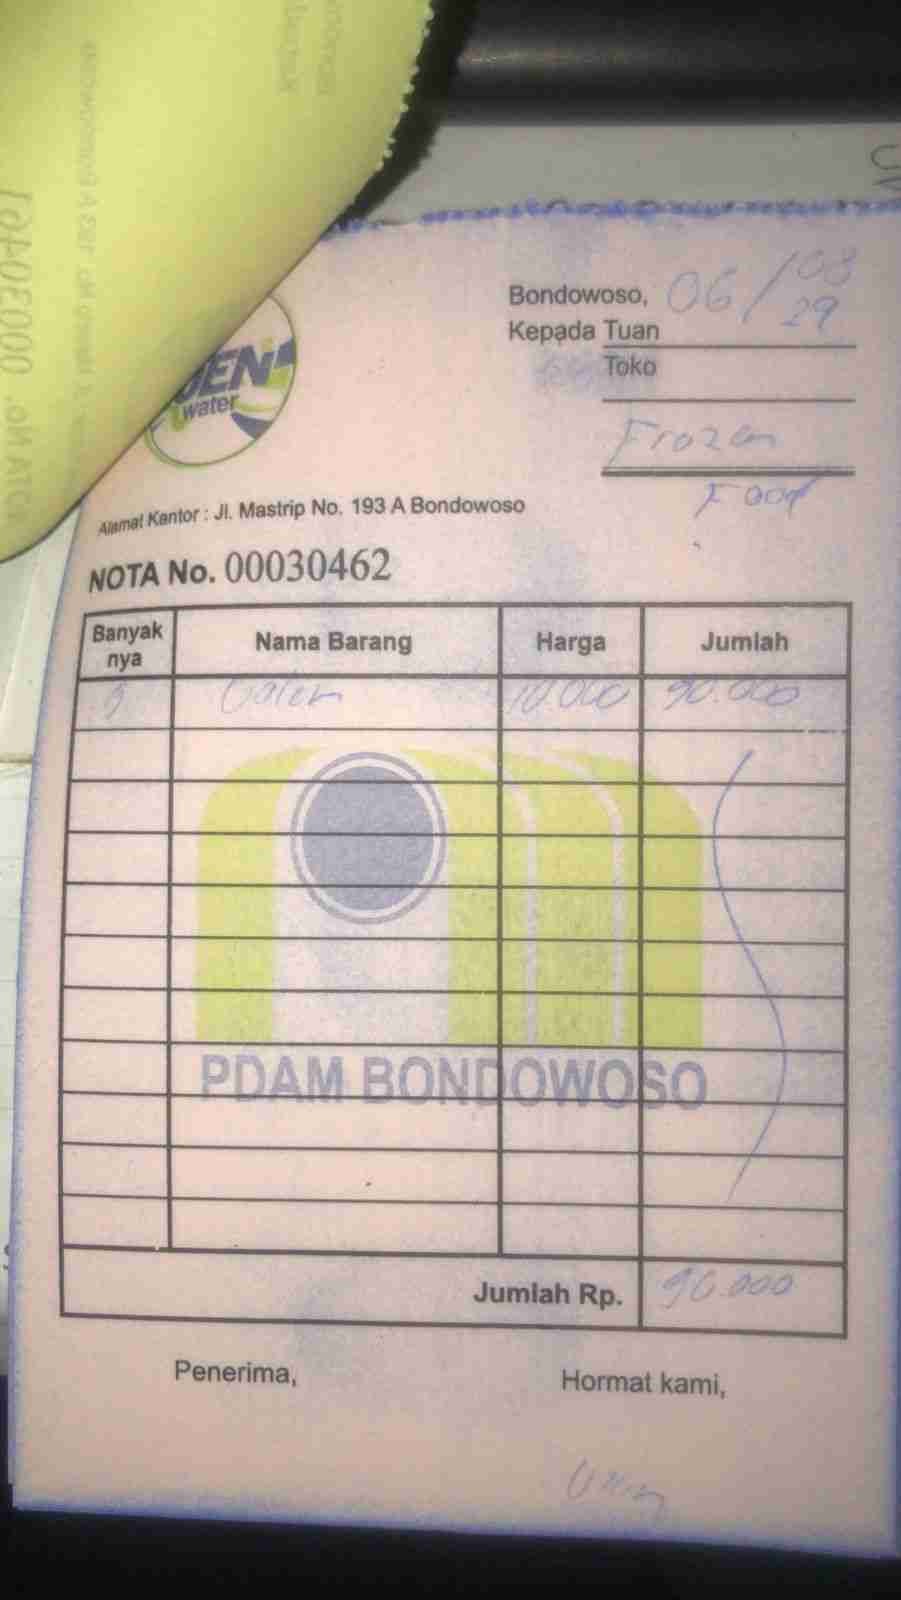 Bondowoso, 06/08
29
Kepada Tuan
Toko
Frozen
Food
GEN
water
Alamat Kantor : Jl. Mastrip No. 193 A Bondowoso
NOTA No. 00030462
Banyak nya Nama Barang Harga Jumlah
9 Galon 10.000 90.000
PDAM BONDOWOSO
Jumlah Rp. 90.000
Penerima, Hormat kami,